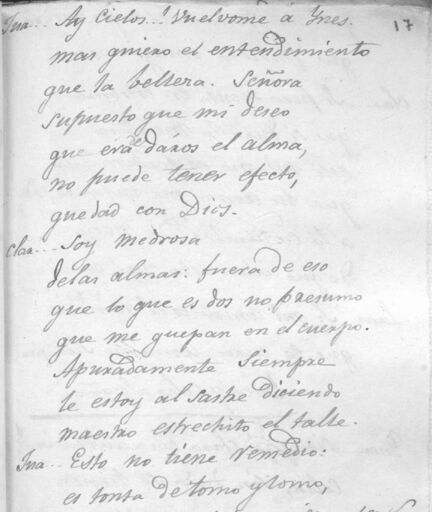 Jna... Ay Cielos..! Vuelvome á Ynes. 17
mas quiero el entendimiento
que la belleza. Señora
supuesto que mi deseo
que era de dáros el alma,
no puede tener efecto,
quedad con Dios.
Claa... Soy medrosa
delas almas: fuera de eso
que lo que es dos no presumo
que me quepan en el cuerpo.
Apuradamente siempre
le estoy al sastre diciendo
maestro estrechito el talle.
Jna... Esto no tiene remedio:
es tonta de tomo y lomo,